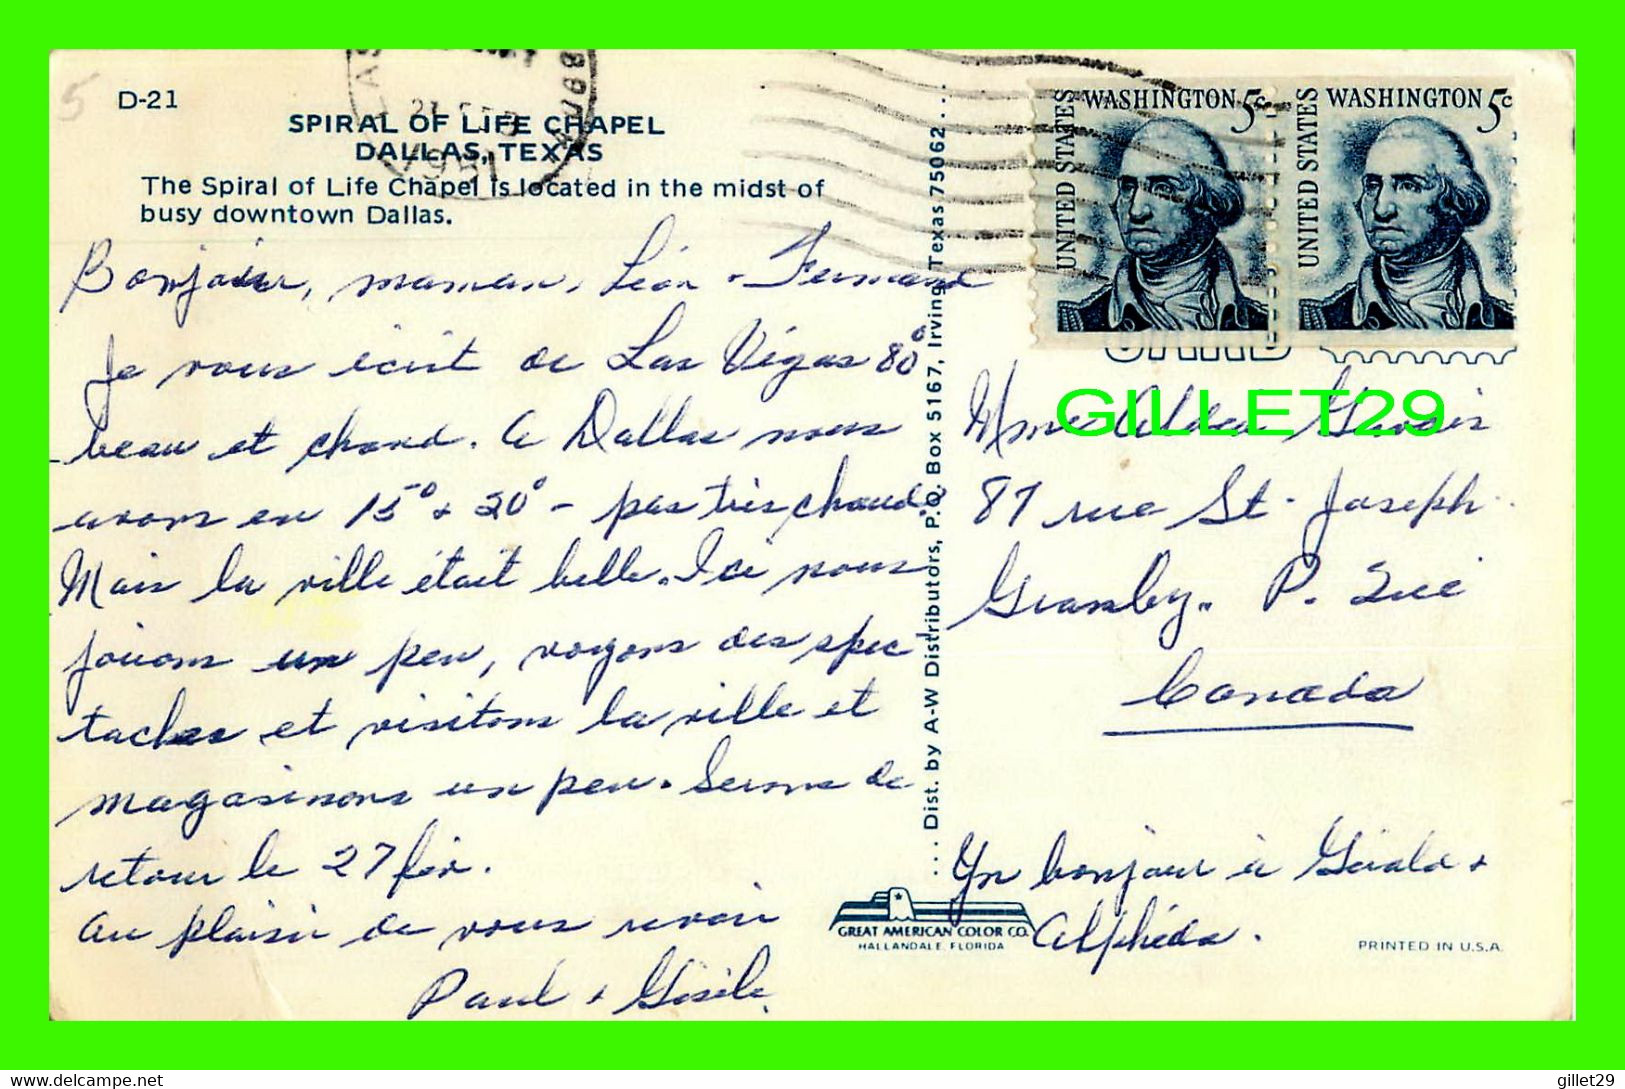 5
D-21
SPIRAL OF LIFE CHAPEL
DALLAS, TEXAS
The Spiral of Life Chapel is located in the midst of
busy downtown Dallas.
Bonjour, maman, Léon + Fernand
Je vous écrit de Las Végas 80°
beau et chaud. A Dallas nous
avons eu 15° + 20° - pas très chaud.
Mais la ville était belle. Ici nous
jouons un peu, voyons des spec
tacles et visitons la ville et
magasinons un peu. Serons de
retour le 27 fév.
Au plaisir de vous revoir
Paul + Gisèle.
... Dist. by A-W Distributors, P.O. Box 5167, Irving, Texas 75062 ...
UNITED STATES WASHINGTON 5c
UNITED STATES WASHINGTON 5c
CARD
GILLET29
Mme Aldéa
87 rue St-Joseph
Granby. P. Qué
Canada
Un bonjour à Gérald +
Alphéda.
GREAT AMERICAN COLOR CO.
HALLANDALE, FLORIDA
PRINTED IN U.S.A.
https://www.delcampe.net
gillet29